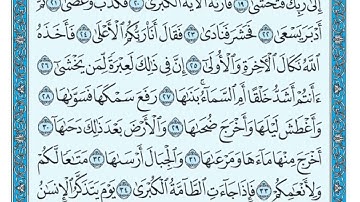 إِلَىٰ رَبِّكَ فَتَخْشَىٰ ١٩ فَأَرَىٰهُ ٱلْءَايَةَ ٱلْكُبْرَىٰ ٢٠ فَكَذَّبَ وَعَصَىٰ ٢١ ثُمَّ
أَدْبَرَ يَسْعَىٰ ٢٢ فَحَشَرَ فَنَادَىٰ ٢٣ فَقَالَ أَنَا۠ رَبُّكُمُ ٱلْأَعْلَىٰ ٢٤ فَأَخَذَهُ
ٱللَّهُ نَكَالَ ٱلْءَاخِرَةِ وَٱلْأُولَىٰٓ ٢٥ إِنَّ فِى ذَٰلِكَ لَعِبْرَةً لِّمَن يَخْشَىٰٓ ٢٦
ءَأَنتُمْ أَشَدُّ خَلْقًا أَمِ ٱلسَّمَآءُ ۚ بَنَىٰهَا ٢٧ رَفَعَ سَمْكَهَا فَسَوَّىٰهَا ٢٨
وَأَغْطَشَ لَيْلَهَا وَأَخْرَجَ ضُحَىٰهَا ٢٩ وَٱلْأَرْضَ بَعْدَ ذَٰلِكَ دَحَىٰهَآ ٣٠
أَخْرَجَ مِنْهَا مَآءَهَا وَمَرْعَىٰهَا ٣١ وَٱلْجِبَالَ أَرْسَىٰهَا ٣٢ مَتَٰعًا لَّكُمْ
وَلِأَنْعَٰمِكُمْ ٣٣ فَإِذَا جَآءَتِ ٱلطَّآمَّةُ ٱلْكُبْرَىٰ ٣٤ يَوْمَ يَتَذَكَّرُ ٱلْإِنسَٰنُ